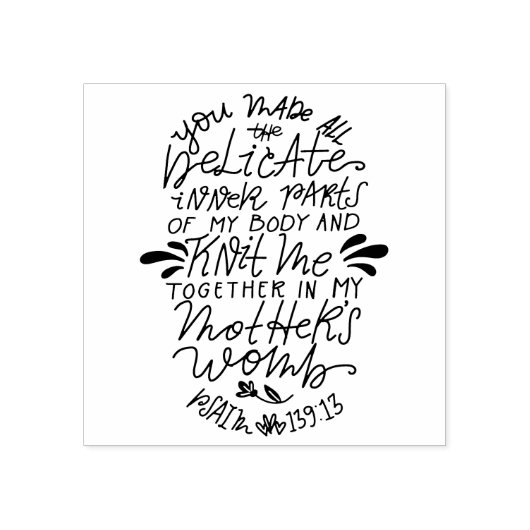 YOU MADE ALL
the
DELICATE
INNER PARTS
OF MY BODY AND
KNIT ME
TOGETHER IN MY
MOTHER'S
WOMB
PSALM 139:13